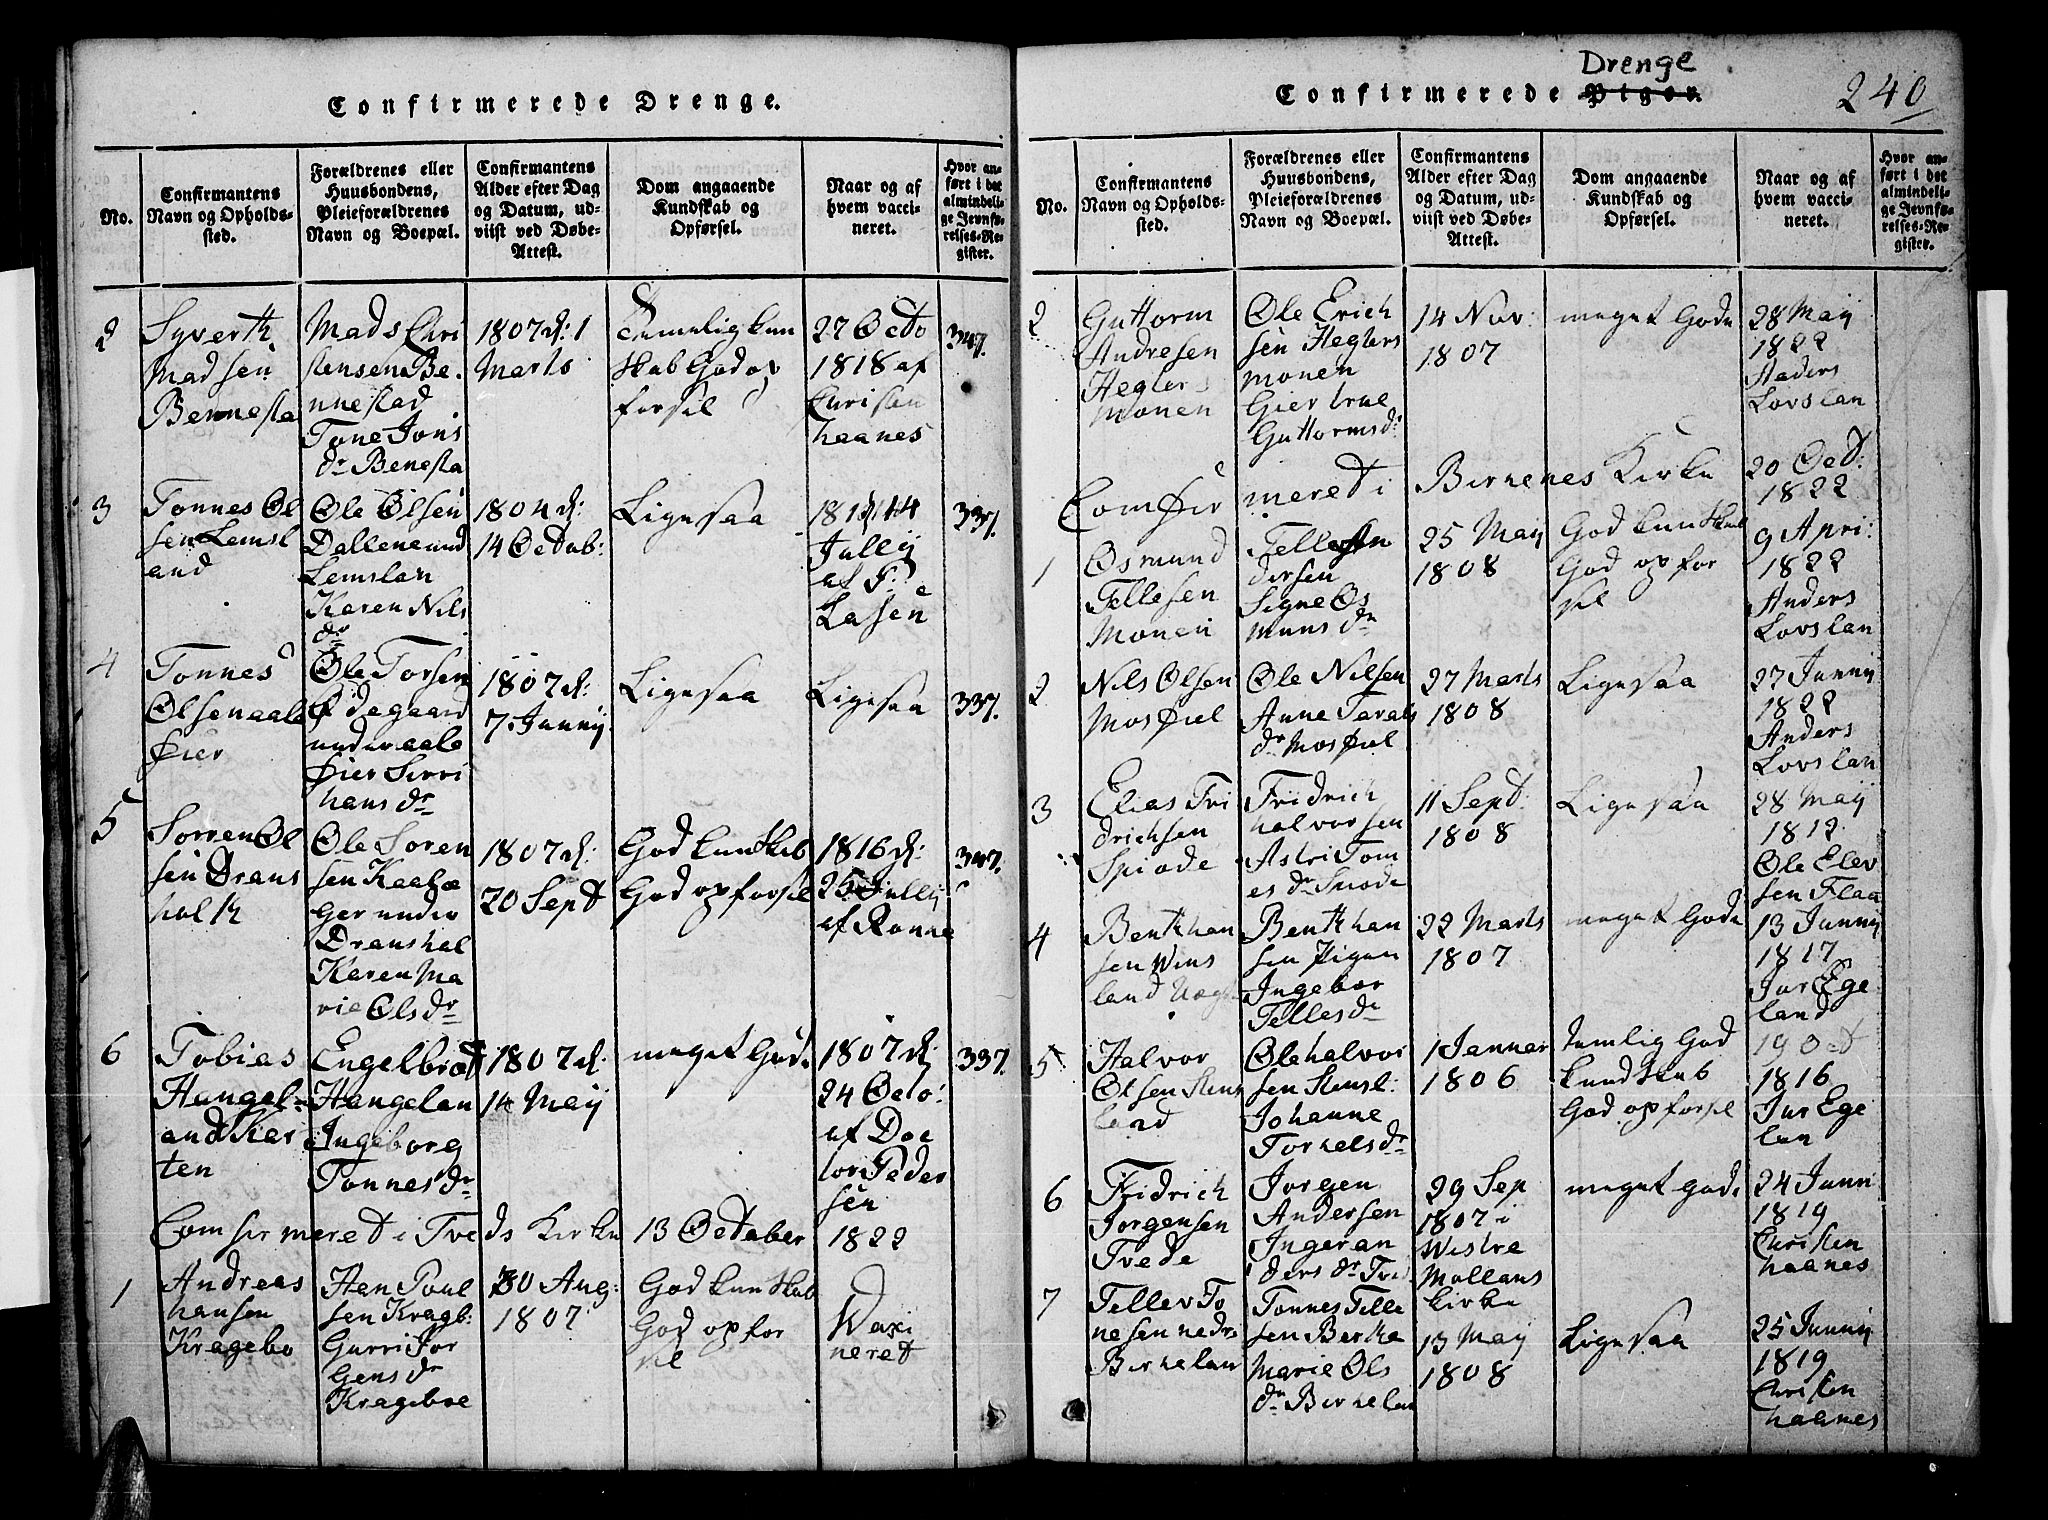 Confirmerede Drenge.
No.
Confirmantens
Navn og Opholds-
sted.
Forældrenes eller
Huusbondens,
Pleieforældrenes
Navn og Boepæl.
Confirmantens
Alder efter Dag
og Datum, ud-
viist ved Døbe-
Attest.
Dom angaaende
Kundskab og
Opførsel.
Naar og af
hvem vacci-
neret.
Hvor an-
ført i det
almindeli-
ge Jevnfø-
relses-Re-
gister.
2
Syverth
Madsen
Bennesta
Mads Chri
stensen Be.
nnestad
Tone Jons
dr Benesta
1807 d: 1
Marts
Temelig kun
skab God op
forsel
27 Octo
1818 af
Christen
haanes
347.
3
Tonnes Ol
sen Lemsl
and
Ole Olsen
Dallene und
Lemslan
Karen Nils
dr
1804 d:
14 Octob:
Ligesaa
14
Jullij
af
Lassen
337.
4
Tonnes
Olsen aale
Øier
Ole Torsen
Ødegaard
under aale
Øier Serri
hans dr
1807 d:
7. Junnij
Ligesaa
Ligesaa
337.
5
Sorren Ol
sen Drans
holt
Ole Soren
sen Kaabe
Ger under
Dranshol
Karen Ma
rie Ols dr
1807 d:
20 Sept
God kunskab
God opforsel
1816 d:
25 Jullij
af Ronne
347.
6
Tobias
Hangel-
and Kar
ten
Engelbret
Hangelan
Ingeborg
Tonnes dr
1807 d:
14 Maij
meget God.
1807 d:
24 Octo:
af Doc
tor Peder
sen
337.
Comfermeret i Tveds Kirke 13 October 1822
1
Andreas
hansen
Kragebo
Hen Poul
sen Kragb:
Gurri Jor
Gens dr
Krageboe
30 Aug:
1807
God kunskab
God opfor
sel
Waxi
neret
Confirmerede Piger.
Drenge
240
No.
Confirmantens
Navn og Opholds-
sted.
Forældrenes eller
Huusbondens,
Pleieforældrenes
Navn og Boepæl.
Confirmantens
Alder efter Dag
og Datum, ud-
viist ved Døbe-
Attest.
Dom angaaende
Kundskab og
Opførsel.
Naar og af
hvem vacci-
neret.
Hvor an-
ført i det
almindeli-
ge Jevnfø-
relses-Re-
gister.
2
Guttorm
Andresen
Heglers
monen
Ole Erich
sen Heglers
monen
Giertrue
Guttorms dr
14 Nov:
1807
meget Gode
28 Maij
1822
Anders
Lovslan
Comfiermeret i Birkenes Kirke 20 Oct:
1822
1
Osmund
Tellesen
Monen
Telle An
dersen
Signe Os
muns dr
25 Maij
1808
God kunskab
God opfor
sel
9 Apri:
1822
Anders
Lovslan
2
Nils Olsen
Mosfiel
Ole Nilsen
Anne Tarals
dr Mosfiel
27 Marts
1808
Ligesaa
27 Junnij
1822
Anders
Lovslan
3
Elias Fri
drichsen
Spiode
Fridrich
halvorsen
Astri Tom
es dr Spiode
11 Sept:
1808
Ligesaa
28 Maij
1812
Ole Elev
sen Flaa
4
Bent han
sen Wins
land
Bent han
sen
Ingebor
Telles dr
22 Marts
1807
meget Gode
13 Junnij
1817
Jur Ege
land
5
Halvor
Olsen Stens
land
Ole halvor
sen Stensl:
Johanne
Torkels dr
1 Januar
1806
temlig God
kundskab
God opforsel
19 Oct
1816
Jur Ege
lan
6
Fridrich
Jorgensen
Tvede
Jorgen
Andersen
Inger an
ders dr Tved
29 Sep
1807 i
Westre
Mollans
kirke
meget gode
24 Junni
1819
Christen
haanes
7
Tellev To
nesen nedre
Birkelan
Tonnes Telle
sen Berke
Marie Ols
dr Birkelan
13 Maij
1808
Ligesaa
25 Junnij
1819
Christen
haanes